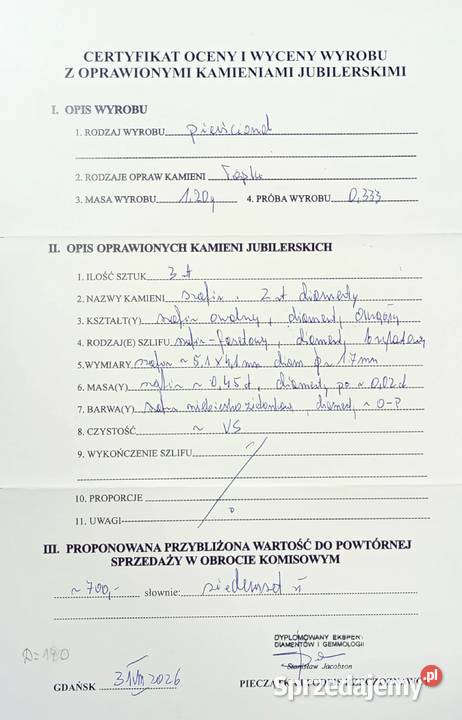 CERTYFIKAT OCENY I WYCENY WYROBU
Z OPRAWIONYMI KAMIENIAMI JUBILERSKIMI
I. OPIS WYROBU
1. RODZAJ WYROBU pierścionek
2. RODZAJE OPRAW KAMIENI Łapki
3. MASA WYROBU 1.20g 4. PRÓBA WYROBU 0,333
II. OPIS OPRAWIONYCH KAMIENI JUBILERSKICH
1. ILOŚĆ SZTUK 3
2. NAZWY KAMIENI szafir. 2 diamenty
3. KSZTAŁT(Y) szafir owalny, diamenty okrągły
4. RODZAJ(E) SZLIFU szafir-fasetowy, diamenty
5. WYMIARY szafir ~ 5,1 x 4,1 mm diam ~ 1.7 mm
6. MASA(Y) szafir ~ 0,45 ct, diamenty po ~ 0,02 ct
7. BARWA(Y) szafir, diament, ~ O-P
8. CZYSTOŚĆ ~ VS
9. WYKOŃCZENIE SZLIFU
10. PROPORCJE
11. UWAGI
III. PROPONOWANA PRZYBLIŻONA WARTOŚĆ DO POWTÓRNEJ
SPRZEDAŻY W OBROCIE KOMISOWYM
~ 700,- słownie: siedemset zł
D=180
DYPLOMOWANY EKSPERT
DIAMENTÓW I GEMMOLOGII
Stanisław Jacobson
GDAŃSK 31 VII 2026 PIECZĄTKA I PODPIS RZECZOZNAWCY
Sprzedajemy.pl